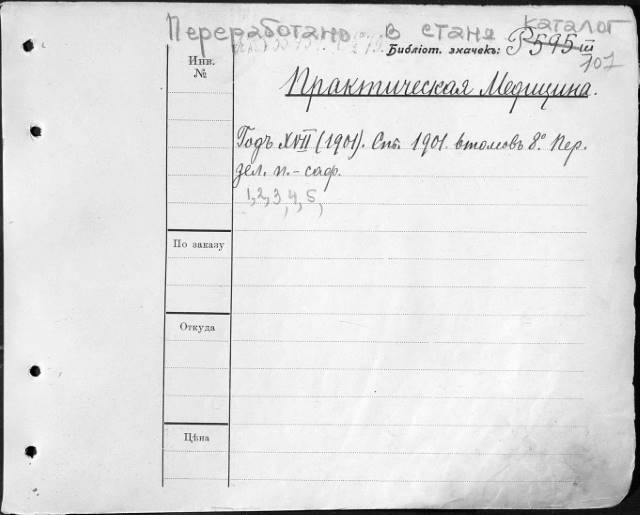 Переработано в станд каталог
Библіот. значекъ: Р595 III
107
Инв.
№
Практическая Медицина.
Годъ XVII (1901). Спб. 1901. 6 томовъ 8°. Пер.
зел. п.-саф.
1,2,3,4,5,
По заказу
Откуда
Цѣна